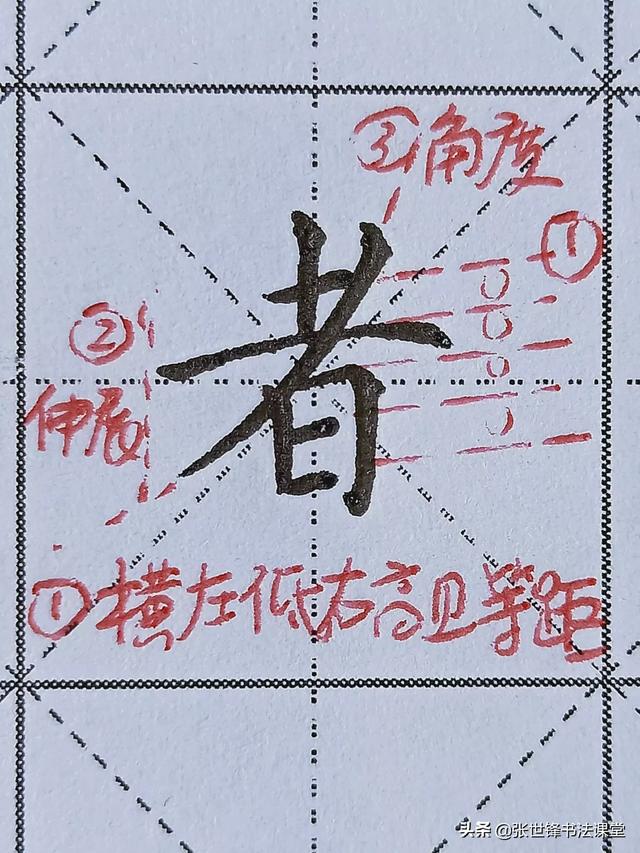 ③角度
①
者
②
伸展
①横左低右高且等距
头条 @张世锋书法课堂